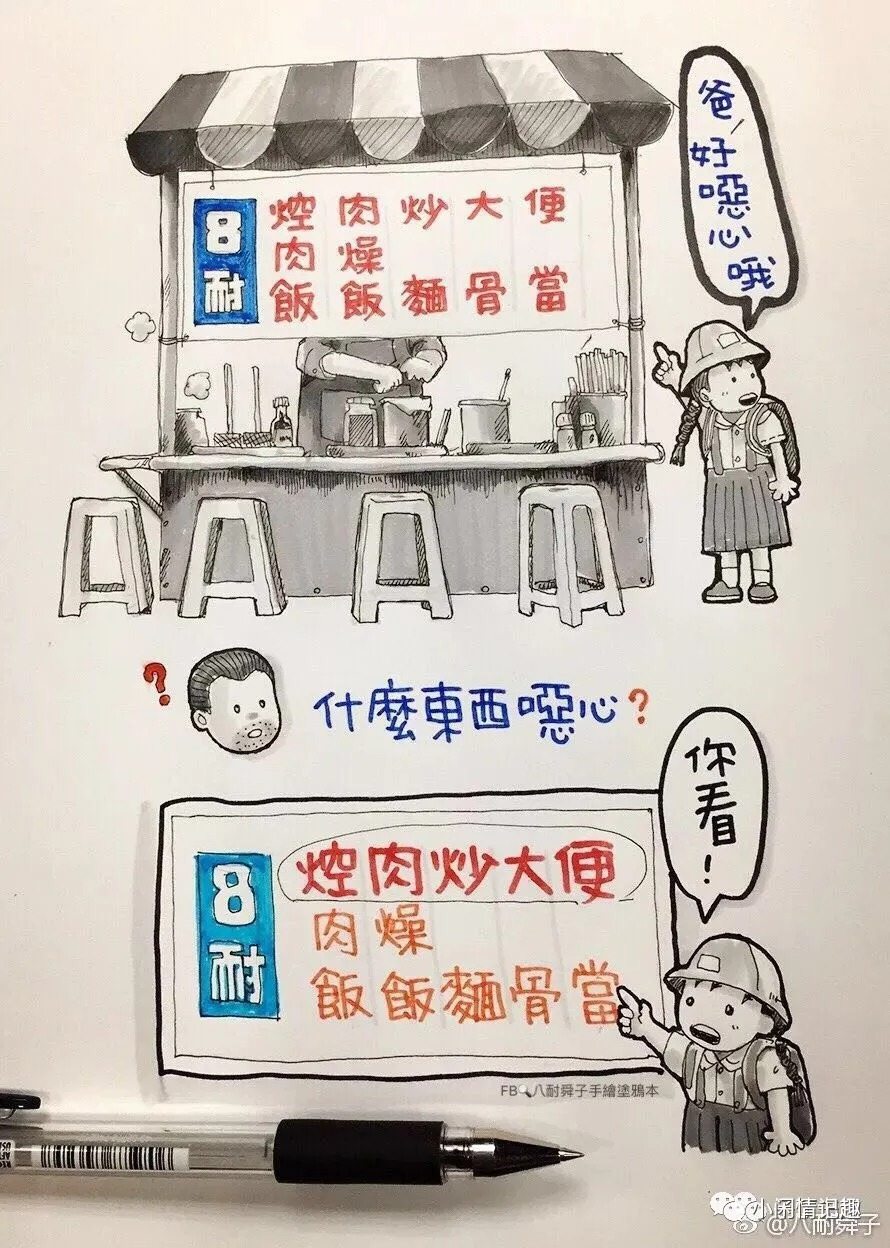 爸，好噁心哦
8耐
焢肉炒大便
肉燥
飯飯麵骨當
?
什麼東西噁心?
你看!
8耐
焢肉炒大便
肉燥
飯飯麵骨當
FB🔍八耐舜子手繪塗鴉本
小闲情记趣
@八耐舜子